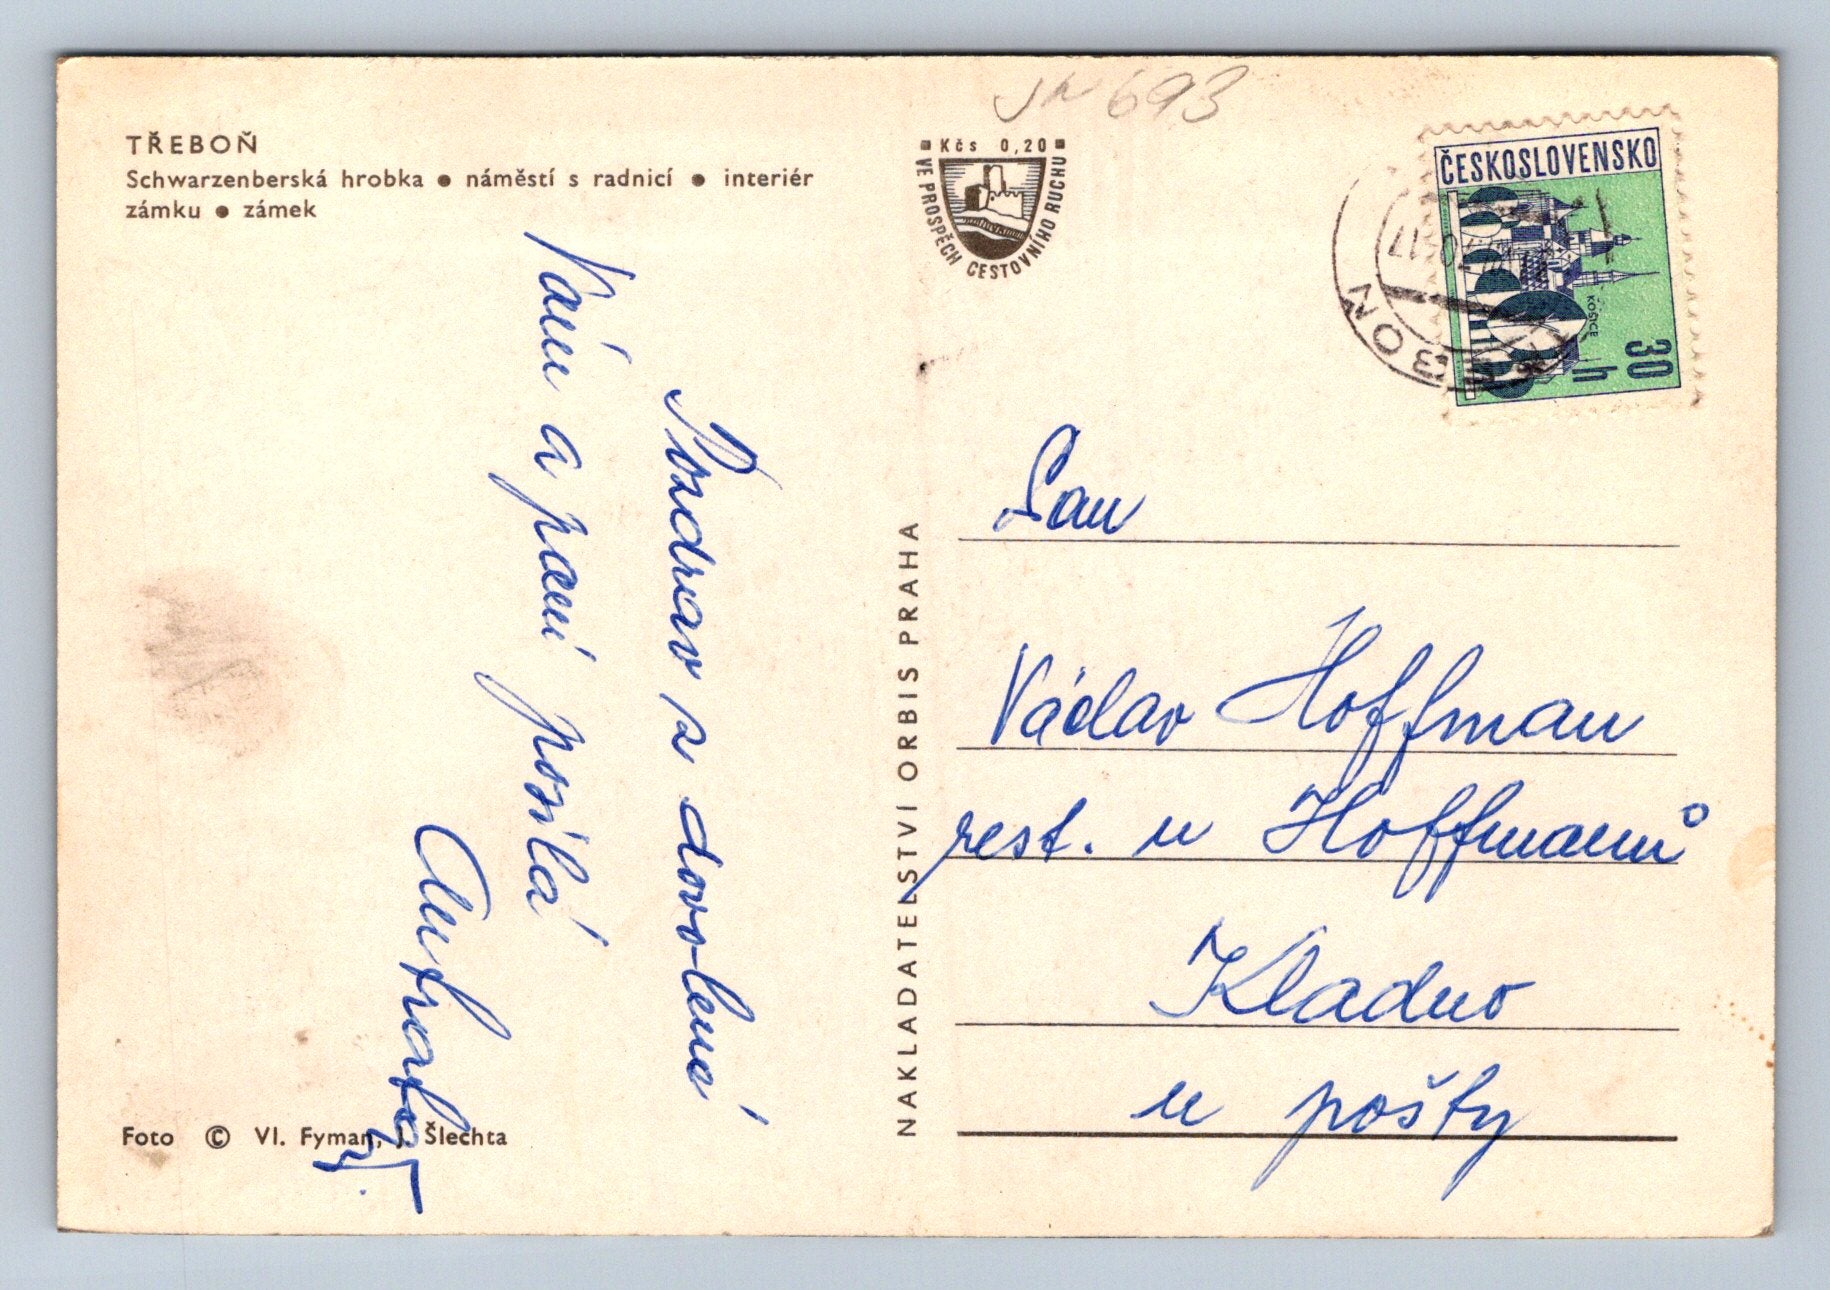 Jn 693
TŘEBOŇ
Schwarzenberská hrobka ● náměstí s radnicí ● interiér
zámku ● zámek
Kčs 0,20
VE PROSPĚCH CESTOVNÍHO RUCHU
ČESKOSLOVENSKO
KOŠICE
30 h
Pozdrav z dovolené
Vám a paní posílá
NAKLADATELSTVÍ ORBIS PRAHA
Pan
Václav Hoffman
rest. u Hoffmanů
Kladno
u pošty
Foto © Vl. Fyman, J. Šlechta